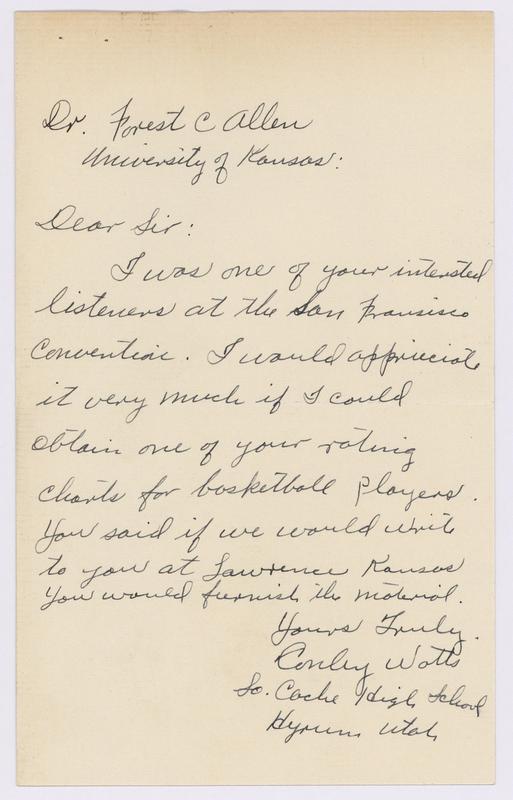 Dr. Forest C Allen
University of Kansas:
Dear Sir:
I was one of your interested
listeners at the San Fransisco
Convention. I would appriciate
it very much if I could
obtain one of your rating
charts for basketball players.
You said if we would write
to you at Lawrence Kansas
you would furnish the material.
Yours Truly.
Conley Watts
So. Cache High School
Hyrum Utah